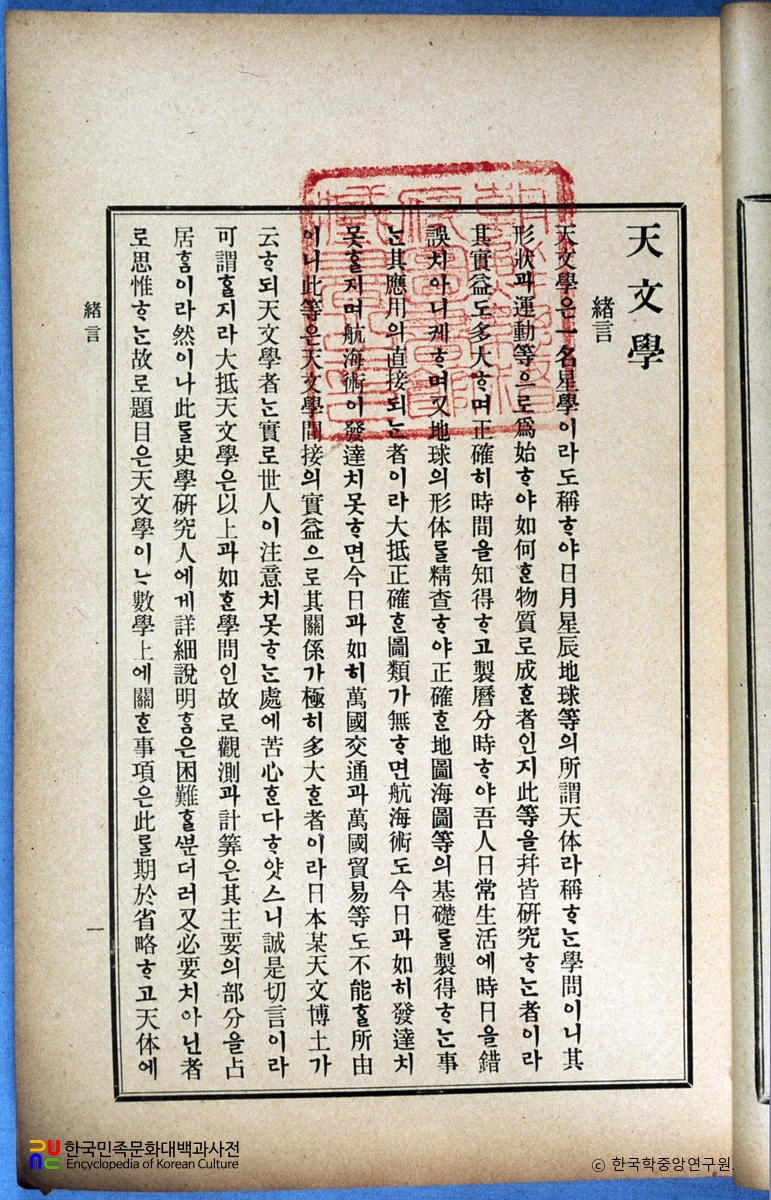 天文學
緖言
天文學은一名星學이라도稱ᄒᆞ야日月星辰地球等의所謂天体라稱ᄒᆞᄂᆞᆫ學問이니其
形状과運動等으로爲始ᄒᆞ야如何ᄒᆞᆫ物質로成ᄒᆞᆫ者인지此等을幷皆硏究ᄒᆞᄂᆞᆫ者이라
其實益도多大ᄒᆞ며正確히時間을知得ᄒᆞ고製曆分時ᄒᆞ야吾人日常生活에時日을錯
誤치아니케ᄒᆞ며又地球의形体ᄅᆞᆯ精査ᄒᆞ야正確ᄒᆞᆫ地圖海圖等의基礎ᄅᆞᆯ製得ᄒᆞᄂᆞᆫ事
ᄂᆞᆫ其應用의直接되ᄂᆞᆫ者이라大抵正確ᄒᆞᆫ圖類가無ᄒᆞ면航海術도今日과如히發達치
못ᄒᆞᆯ지며航海術이發達치못ᄒᆞ면今日과如히萬國交通과萬國貿易等도不能ᄒᆞᆯ所由
이니此等은天文學間接의實益으로其關係가極히多大ᄒᆞᆫ者이라日本某天文博士가
云ᄒᆞ되天文學者ᄂᆞᆫ實로世人이注意치못ᄒᆞᄂᆞᆫ處에苦心ᄒᆞᆫ다ᄒᆞ얏스니誠是切言이라
可謂ᄒᆞᆯ지라大抵天文學은以上과如ᄒᆞᆫ學問인故로觀測과計筭은其主要의部分을占
居ᄒᆞᆷ이라然이나此ᄅᆞᆯ史學硏究人에게詳細說明ᄒᆞᆷ은困難ᄒᆞᆯᄲᅮᆫ더러又必要치아닌者
로思惟ᄒᆞᄂᆞᆫ故로題目은天文學이ᄂᆞ數學上에關ᄒᆞᆫ事項은此ᄅᆞᆯ期於省略ᄒᆞ고天体에
緖言
一
한국민족문화대백과사전
Encyclopedia of Korean Culture
© 한국학중앙연구원